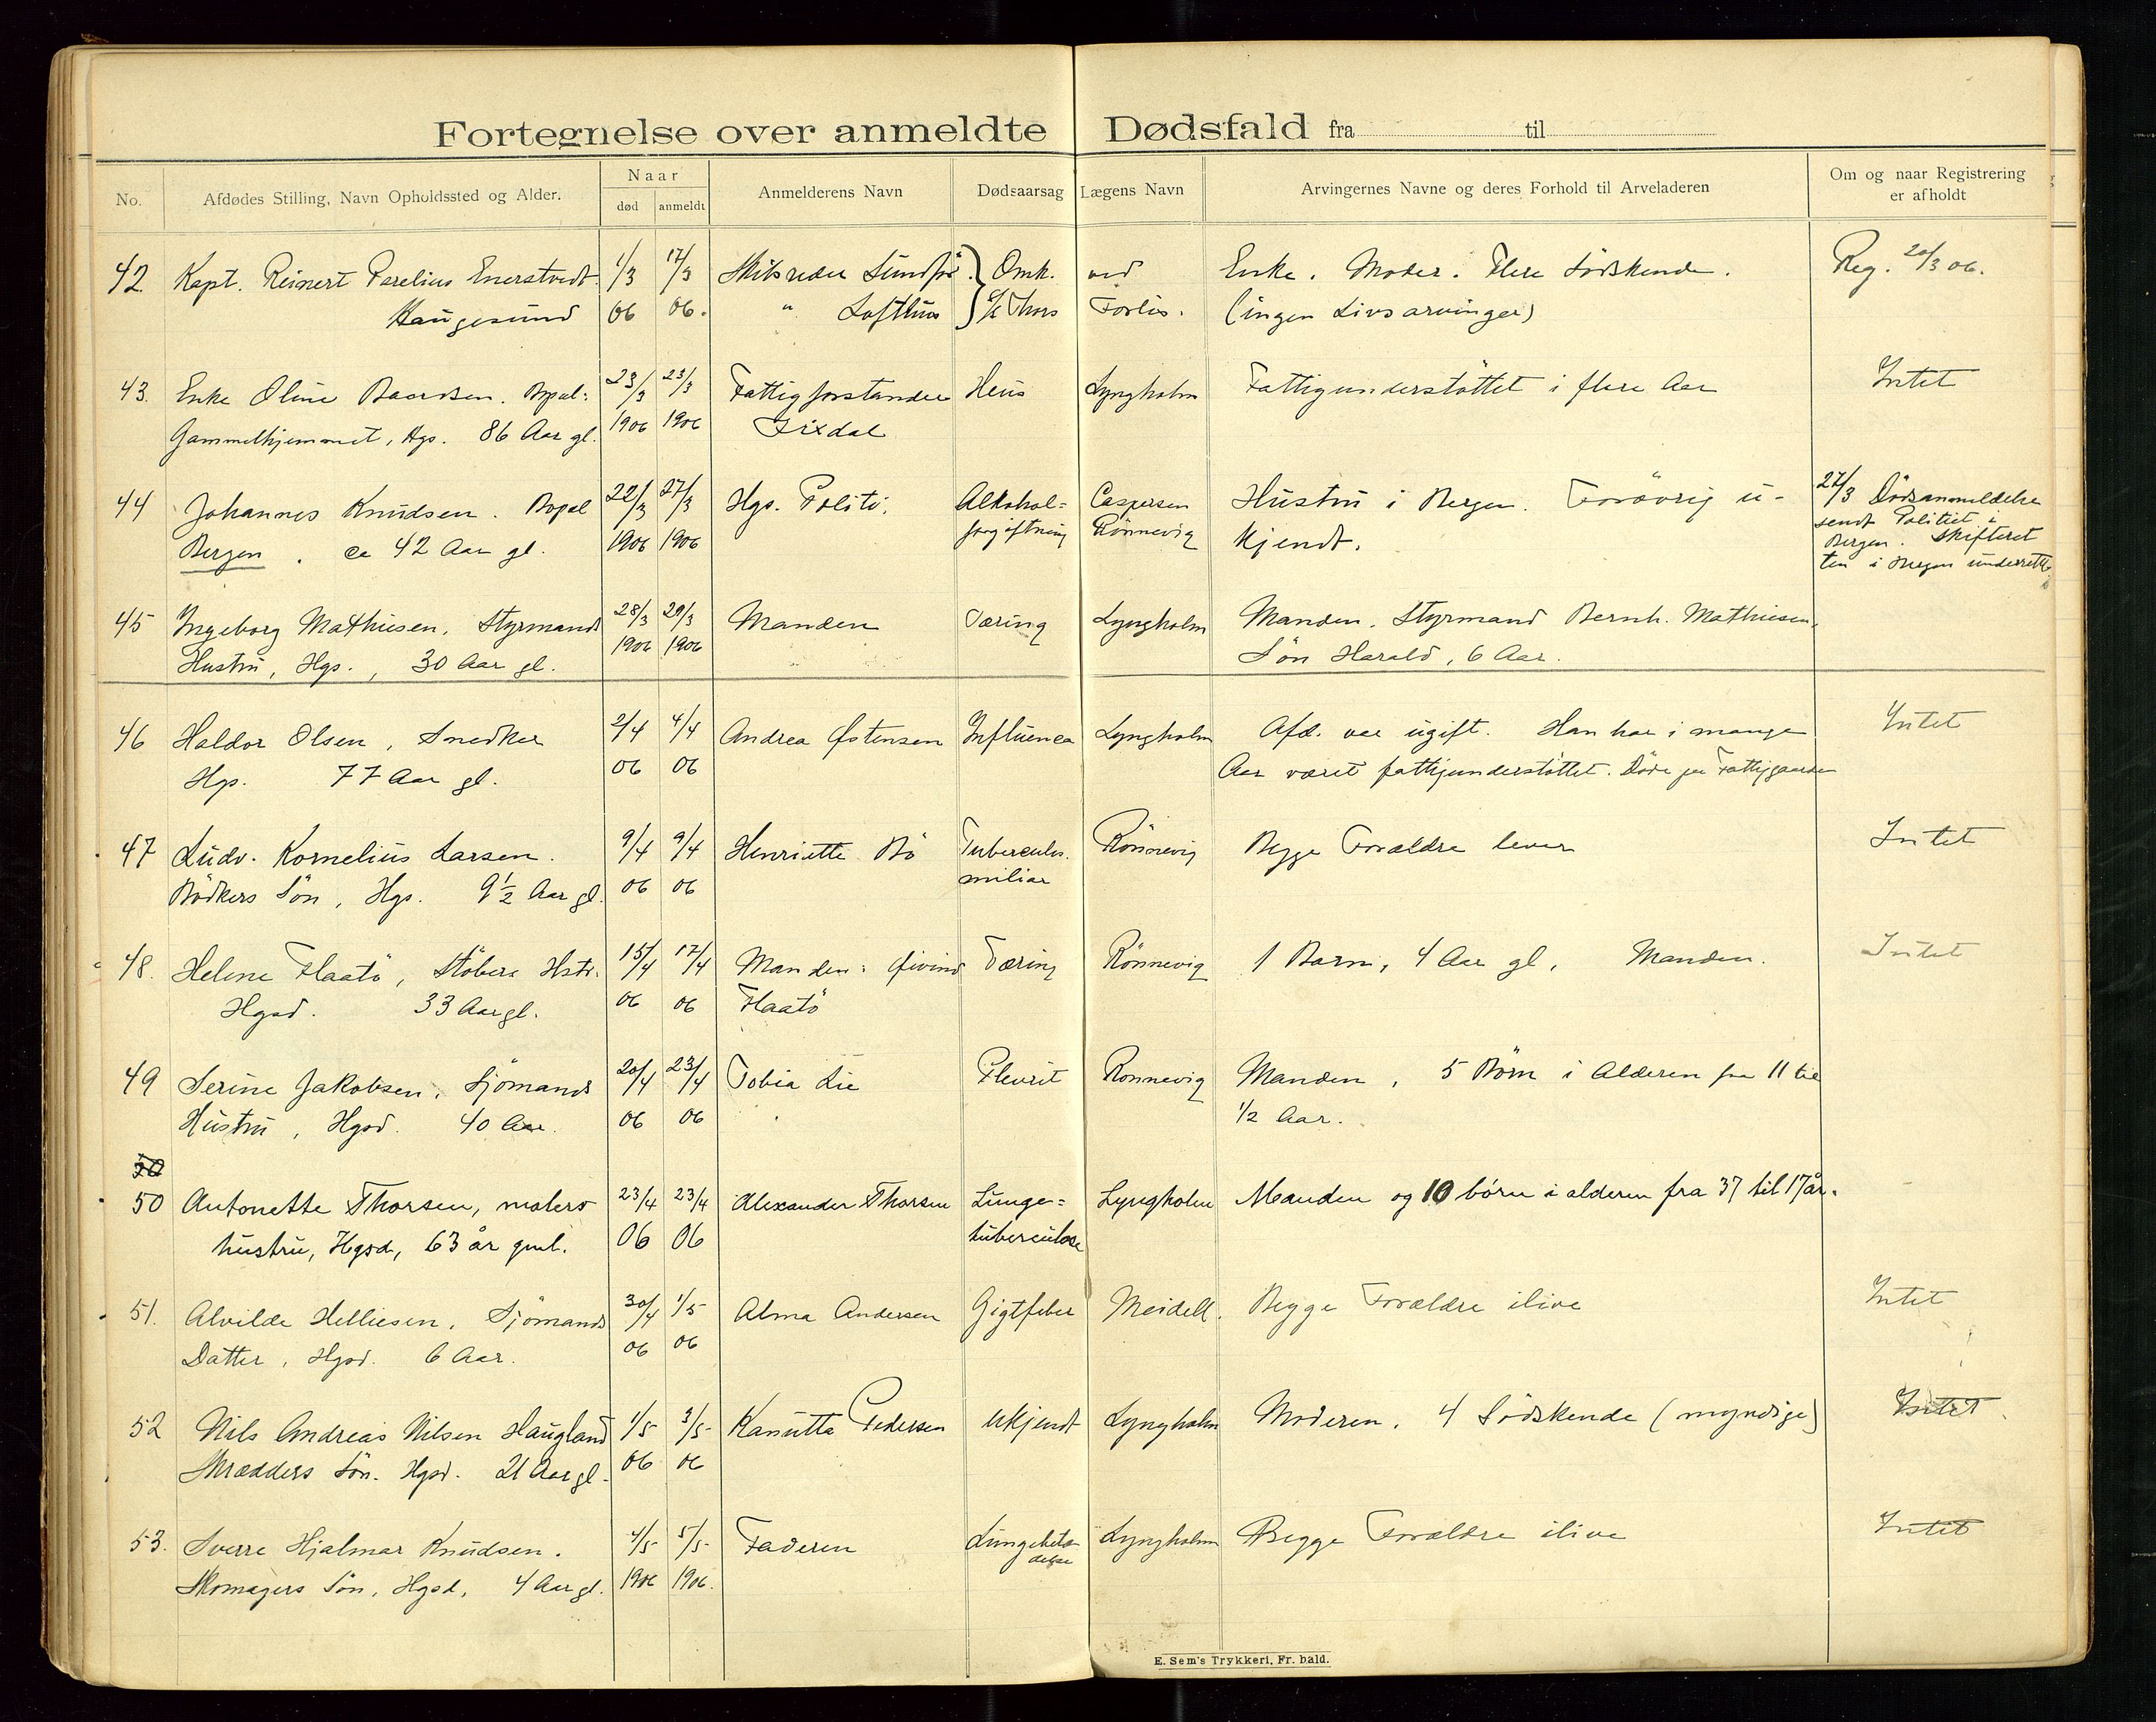 Fortegnelse over anmeldte Dødsfald fra til
No. Afdødes Stilling, Navn Opholdssted og Alder. Naar død anmeldt Anmelderens Navn Dødsaarsag Lægens Navn Arvingernes Navne og deres Forhold til Arveladeren Om og naar Registrering er afholdt
42 Kapt. Reinert Parelius Enerstvedt 1/3 17/3 Skibsreder Lundfør Omk. ved Enke. Moder. Flere Södskende. Reg. 20/3 06.
Haugesund 06 06. " Lofthus S/S Thors Forlis. (ingen Livsarvinger)
43. Enke Oline Baardsen. Bopæl: 23/3 23/3 Fattigforstander Lyngholm Fattigunderstöttet i flere Aar Intet
Gammelhjemmet, Hgs. 86 Aar gl. 1906 1906 Tixdal
44 Johannes Knudsen. Bopæl 22/3 27/3 Hgs. Politi. Alkohol= Caspersen Hustru i Bergen. Forövrig u- 27/3 Dödsanmeldelse
Bergen. ca 42 Aar gl. 1906 1906 forgiftning Rönnevig kjendt. sendt Politiet i
Bergen. Skifteret
ten i Bergen underrett
45 Ingeborg Mathiesen, Styrmands 28/3 29/3 Manden Tæring Lyngholm Manden. Styrmand Bernh. Mathiesen,
Hustru, Hgs., 30 Aar gl. 1906 1906 Sön Harald, 6 Aar.
46 Haldor Olsen, Snedker 2/4 4/4 Andrea Østensen Influenca Lyngholm Afd. var ugift. Han har i mange Intet
Hgs. 77 Aar gl. 06 06 Aar været fattigunderstöttet. Döde paa Fattiggaarden
47 Ludv. Kornelius Larsen. 9/4 9/4 Henriette Bö Tuberculos. Rönnevig Begge Forældre lever Intet
Bödkers Sön, Hgs. 9½ Aar gl. 06 06 miliar
48. Helene Flaatö, Stöbers Hstr. 15/4 17/4 Manden: Øivind Tæring Rönnevig 1 Barn, 4 Aar gl, Manden. Intet
Hgsd. 33 Aar gl. 06 06 Flaatö
49 Serine Jakobsen, Sjömands 20/4 23/4 Tobia Lie Plevrit Ronnevig Manden, 5 Börn i Alderen fra 11 til
Hustru, Hgsd. 40 Aar. 06 06 1/2 Aar.
50
50 Antonette Thorsen, malers 23/4 23/4 Alexander Thorsen Lunge= Lyngholm Manden og 10 börn i alderen fra 37 til 17 år.
hustru, Hgsd, 63 år gml. 06 06 tuberculose
51. Alvilde Helliesen, Sjömands 30/4 1/5 Alma Andersen Gigtfeber Meidell. Begge Forældre ilive Intet
Datter, Hgsd. 6 Aar. 06 06
52 Nils Andreas Nilsen Haugland 1/5 3/5 Kanutta Pedersen Ukjendt Lyngholm Moderen, 4 Södskende (myndige) Intet
Skrædders Sön. Hgsd. 21 Aar gl. 06 06
53. Sverre Hjalmar Knudsen. 4/5 5/5 Faderen Lungebetæn Lyngholm Begge Forældre ilive Intet
Skomagers Sön, Hgsd, 4 Aar gl. 1906 1906. delse
E. Sem's Trykkeri, Fr. hald.